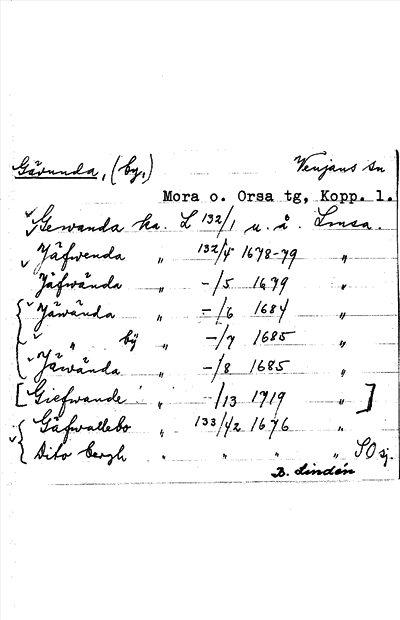 Gävunda, (by.) Venjans sn
Mora o. Orsa tg, Kopp. l.
Gewanda ka. L 132/1 u. å. Lmsa.
Jäfwenda " 132/4 1678-79 "
Jäfwända " -/5 1679 "
Jäwända " -/6 1684 "
" bÿ " -/7 1685 "
Jäwända " -/8 1685 "
[Giefwande " -/13 1719 "]
Gäfwallebo " 133/42 1676 "
Dito bergh " " " " SO sj.
B. Lindén